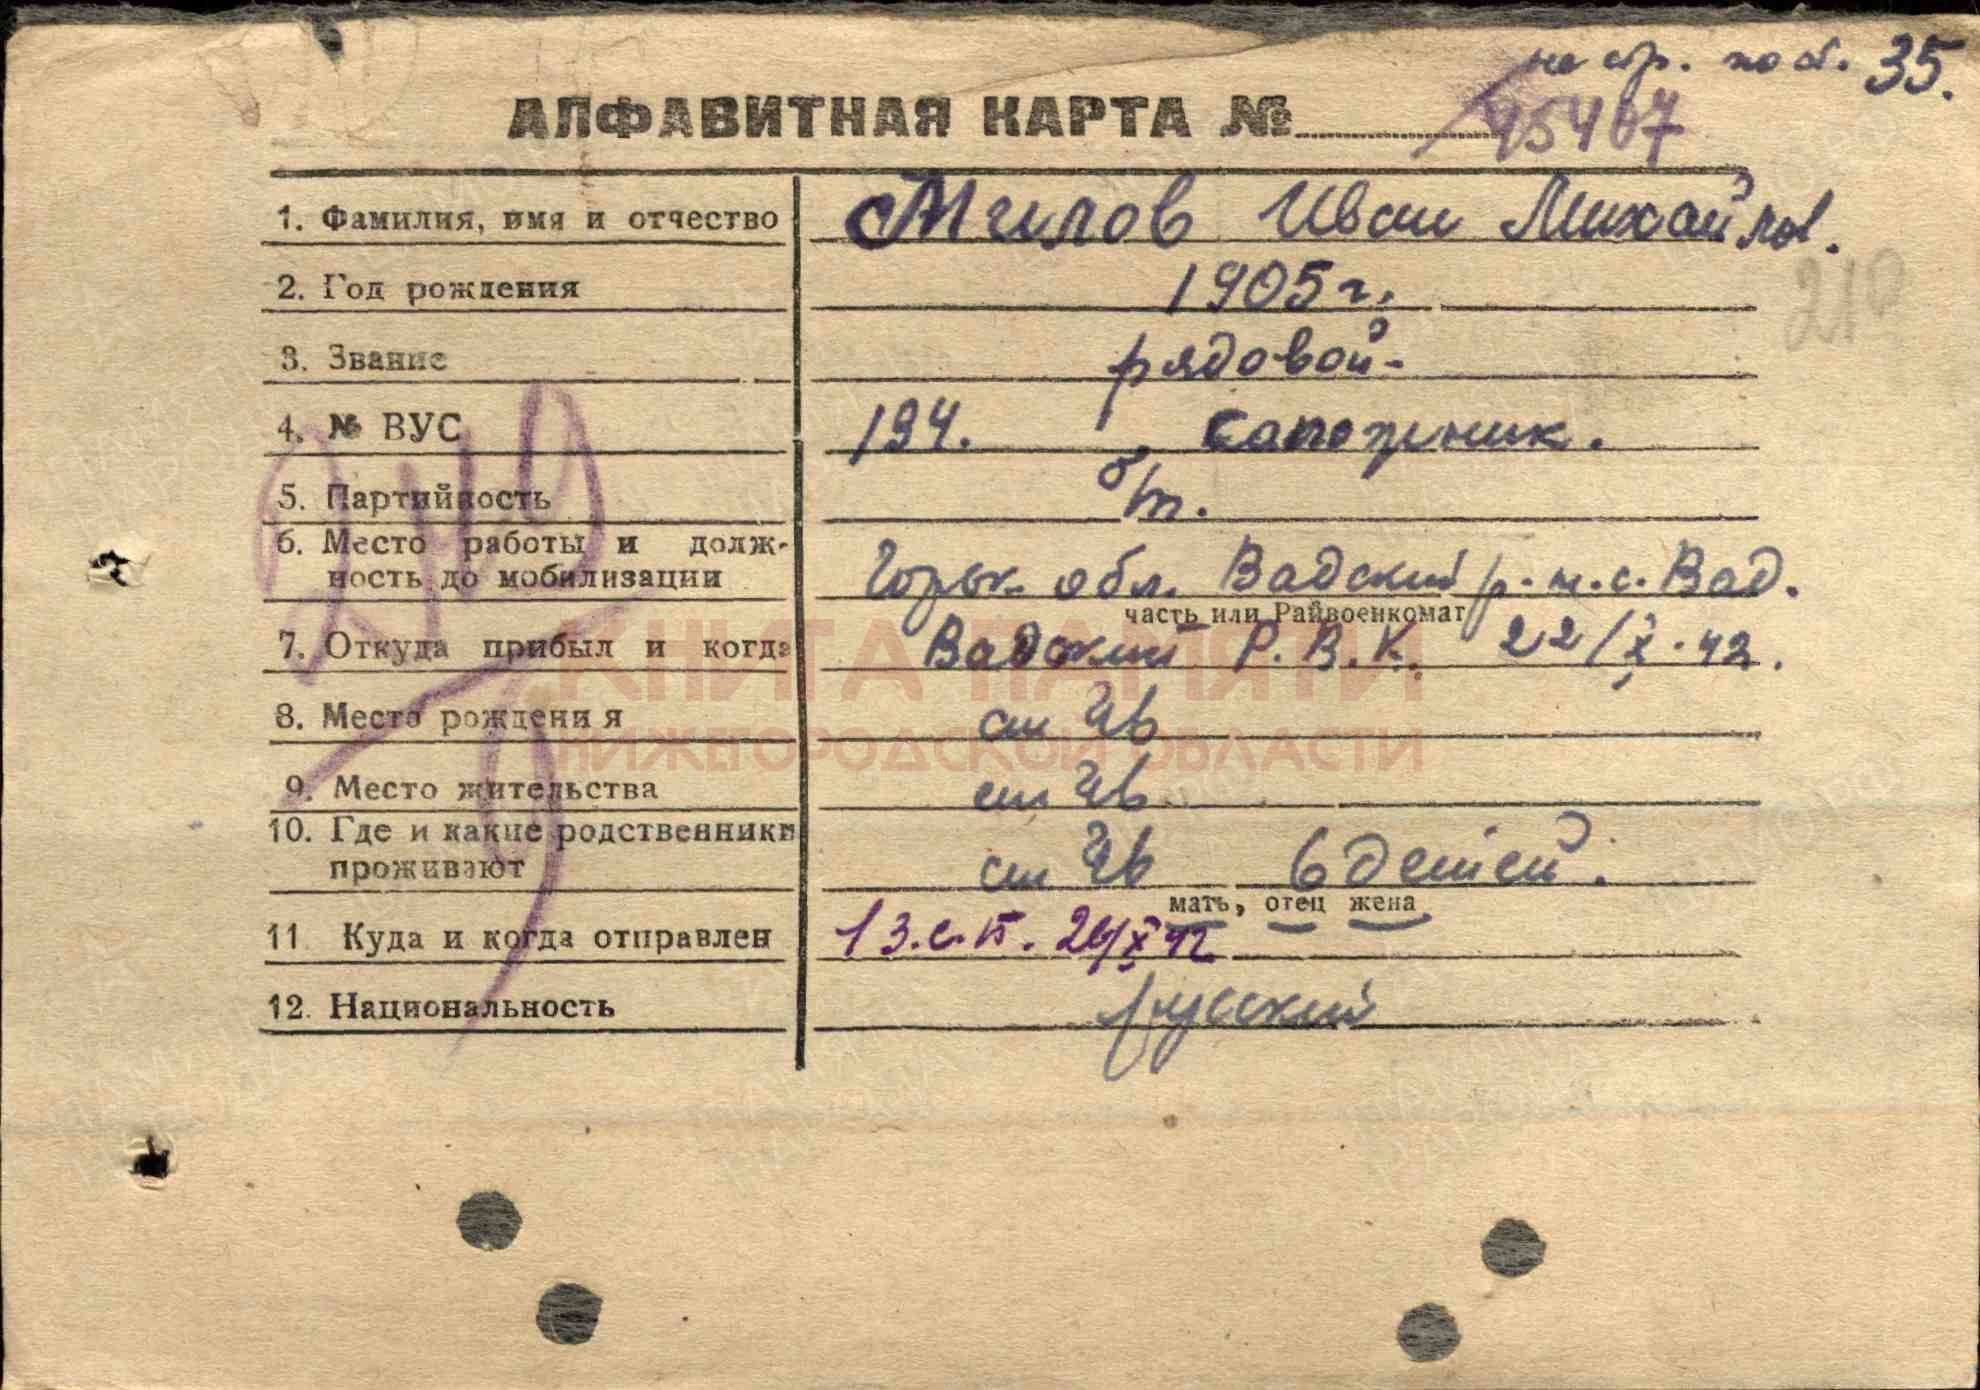 на стр. по сп. 35.
АЛФАВИТНАЯ КАРТА № 95467
1. Фамилия, имя и отчество Милов Иван Михайлов.
210
2. Год рождения 1905 г.
3. Звание рядовой-
4. № ВУС 134. сапожник.
5. Партийность б/п.
6. Место работы и долж-
ность до мобилизации Горьк. обл. Вадский р-н. с. Вад.
часть или Райвоенкомат
7. Откуда прибыл и когда Вадский Р.В.К. 22/X-42.
8. Место рождения
9. Место жительства
10. Где и какие родственники
проживают 6 детей.
мать, отец жена
11 Куда и когда отправлен 13.с.п. 26/X 42
12. Национальность русский
КНИГА ПАМЯТИ
НИЖЕГОРОДСКОЙ ОБЛАСТИ